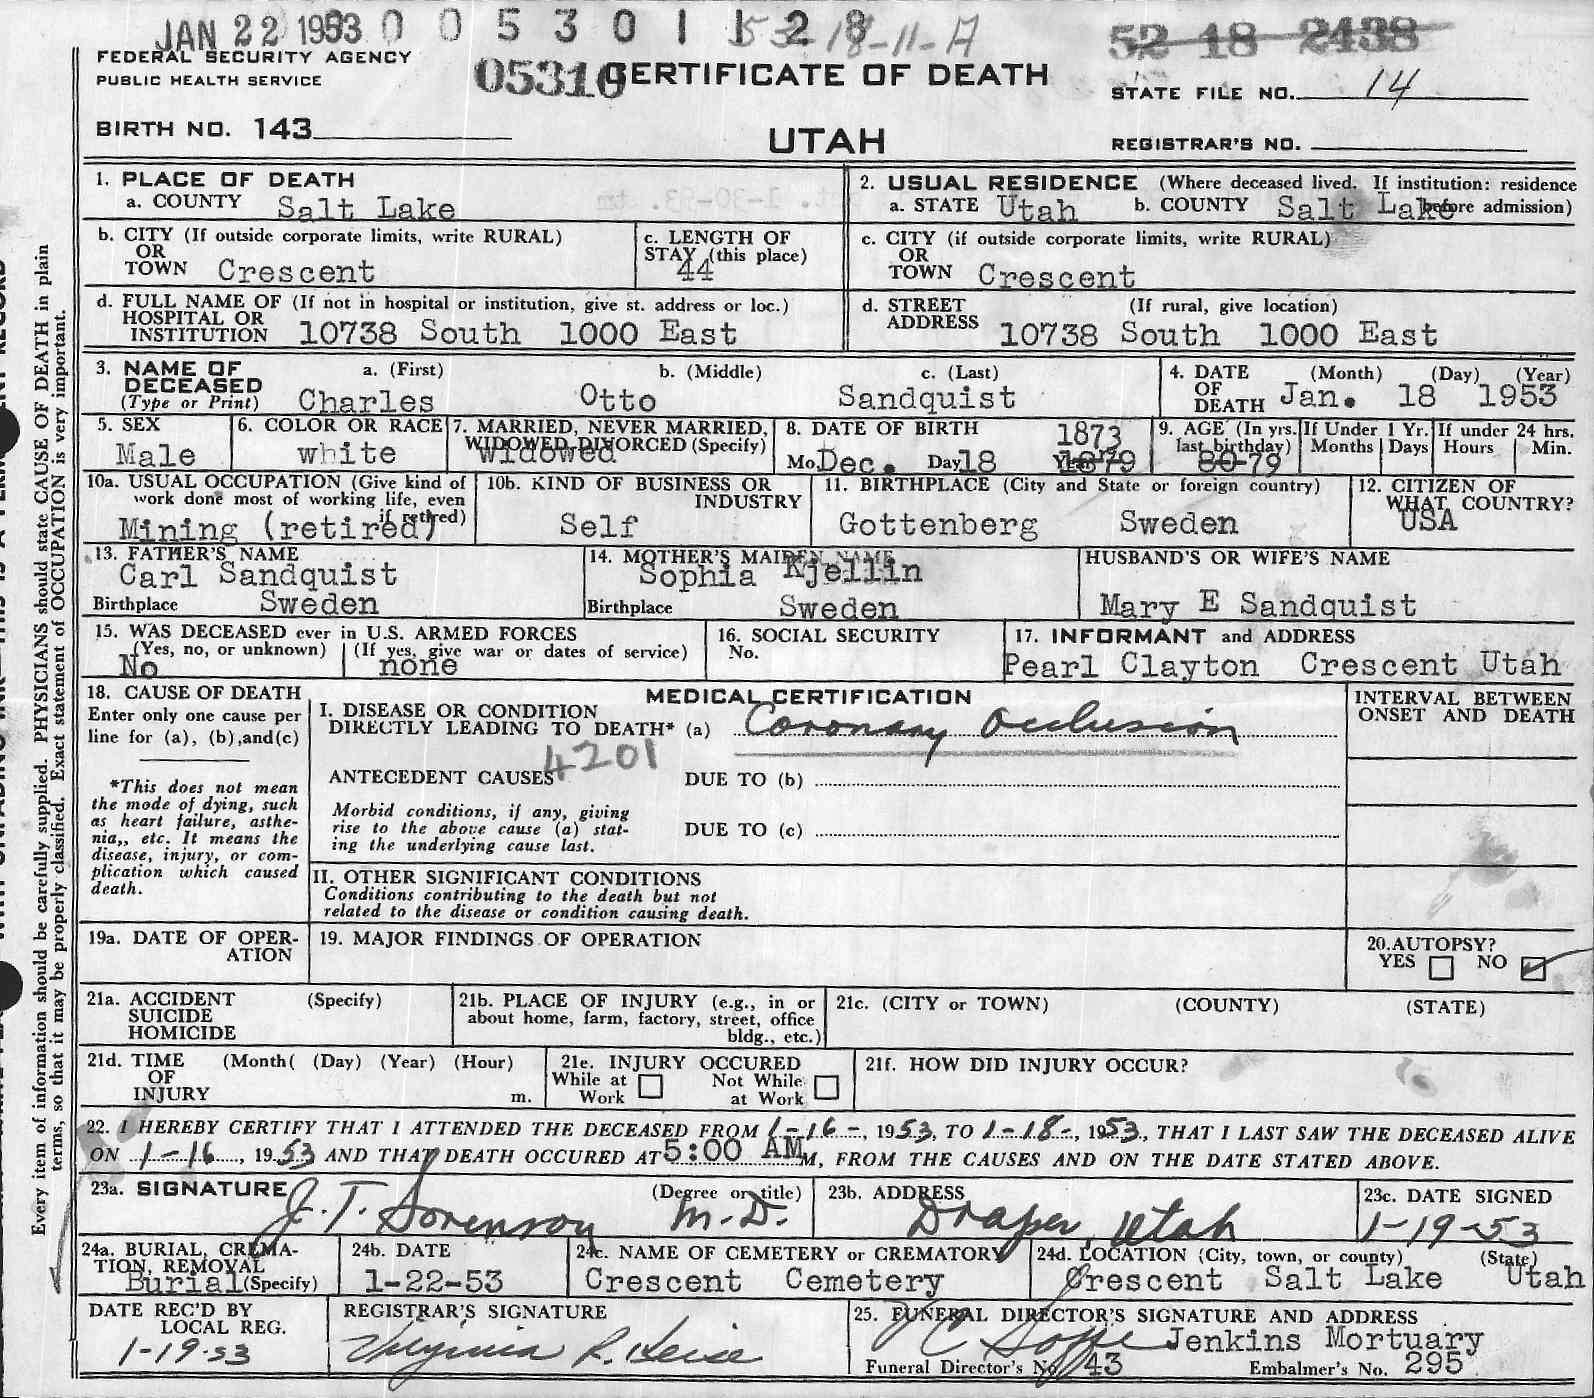 JAN 22 1953 0 0 5 3 0 1 1 2 8 53-18-11-A 52 18 2438
FEDERAL SECURITY AGENCY
PUBLIC HEALTH SERVICE
05316 CERTIFICATE OF DEATH
STATE FILE NO. 14
BIRTH NO. 143
UTAH
REGISTRAR'S NO.
1. PLACE OF DEATH
a. COUNTY Salt Lake
2. USUAL RESIDENCE (Where deceased lived. If institution: residence before admission)
a. STATE Utah b. COUNTY Salt Lake
b. CITY (If outside corporate limits, write RURAL)
OR
TOWN Crescent
c. LENGTH OF
STAY (this place)
44
c. CITY (if outside corporate limits, write RURAL)
OR
TOWN Crescent
d. FULL NAME OF (If not in hospital or institution, give st. address or loc.)
HOSPITAL OR
INSTITUTION 10738 South 1000 East
d. STREET (If rural, give location)
ADDRESS 10738 South 1000 East
3. NAME OF
DECEASED
(Type or Print)
a. (First) b. (Middle) c. (Last)
Charles Otto Sandquist
4. DATE (Month) (Day) (Year)
OF
DEATH Jan. 18 1953
5. SEX
Male
6. COLOR OR RACE
white
7. MARRIED, NEVER MARRIED,
WIDOWED, DIVORCED (Specify)
Widowed
8. DATE OF BIRTH 1873
Mo. Dec. Day 18 Year 1879
9. AGE (In yrs. last birthday)
80-79
If Under 1 Yr.
Months Days
If under 24 hrs.
Hours Min.
10a. USUAL OCCUPATION (Give kind of
work done most of working life, even
if retired)
Mining (retired)
10b. KIND OF BUSINESS OR
INDUSTRY
Self
11. BIRTHPLACE (City and State or foreign country)
Gottenberg Sweden
12. CITIZEN OF
WHAT COUNTRY?
USA
13. FATHER'S NAME
Carl Sandquist
Birthplace Sweden
14. MOTHER'S MAIDEN NAME
Sophia Kjellin
Birthplace Sweden
HUSBAND'S OR WIFE'S NAME
Mary E Sandquist
15. WAS DECEASED ever in U.S. ARMED FORCES
(Yes, no, or unknown) (If yes, give war or dates of service)
No none
16. SOCIAL SECURITY
No.
17. INFORMANT and ADDRESS
Pearl Clayton Crescent Utah
18. CAUSE OF DEATH
Enter only one cause per
line for (a), (b), and (c)
*This does not mean
the mode of dying, such
as heart failure, asthe-
nia,, etc. It means the
disease, injury, or com-
plication which caused
death.
MEDICAL CERTIFICATION
I. DISEASE OR CONDITION
DIRECTLY LEADING TO DEATH* (a) Coronary Occlusion
4201
ANTECEDENT CAUSES DUE TO (b)
Morbid conditions, if any, giving
rise to the above cause (a) stat-
ing the underlying cause last.
DUE TO (c)
INTERVAL BETWEEN
ONSET AND DEATH
II. OTHER SIGNIFICANT CONDITIONS
Conditions contributing to the death but not
related to the disease or condition causing death.
19a. DATE OF OPER-
ATION
19. MAJOR FINDINGS OF OPERATION
20. AUTOPSY?
YES NO
21a. ACCIDENT (Specify)
SUICIDE
HOMICIDE
21b. PLACE OF INJURY (e.g., in or
about home, farm, factory, street, office
bldg., etc.)
21c. (CITY or TOWN) (COUNTY) (STATE)
21d. TIME (Month( (Day) (Year) (Hour)
OF
INJURY m.
21e. INJURY OCCURED
While at Work Not While at Work
21f. HOW DID INJURY OCCUR?
22. I HEREBY CERTIFY THAT I ATTENDED THE DECEASED FROM 1-16-, 1953, TO 1-18-, 1953, THAT I LAST SAW THE DECEASED ALIVE
ON 1-16, 1953 AND THAT DEATH OCCURED AT 5:00 AM M, FROM THE CAUSES AND ON THE DATE STATED ABOVE.
23a. SIGNATURE (Degree or title)
J. T. Sorenson M.D.
23b. ADDRESS
Draper, Utah
23c. DATE SIGNED
1-19-53
24a. BURIAL, CREMA-
TION, REMOVAL
Burial (Specify)
24b. DATE
1-22-53
24c. NAME OF CEMETERY or CREMATORY
Crescent Cemetery
24d. LOCATION (City, town, or county) (State)
Crescent Salt Lake Utah
DATE REC'D BY
LOCAL REG.
1-19-53
REGISTRAR'S SIGNATURE
Virginia R.
25. FUNERAL DIRECTOR'S SIGNATURE AND ADDRESS
Jenkins Mortuary
Funeral Director's No. 43 Embalmer's No. 295
Every item of information should be carefully supplied. PHYSICIANS should state CAUSE OF DEATH in plain
terms, so that it may be properly classified. Exact statement of OCCUPATION is very important.